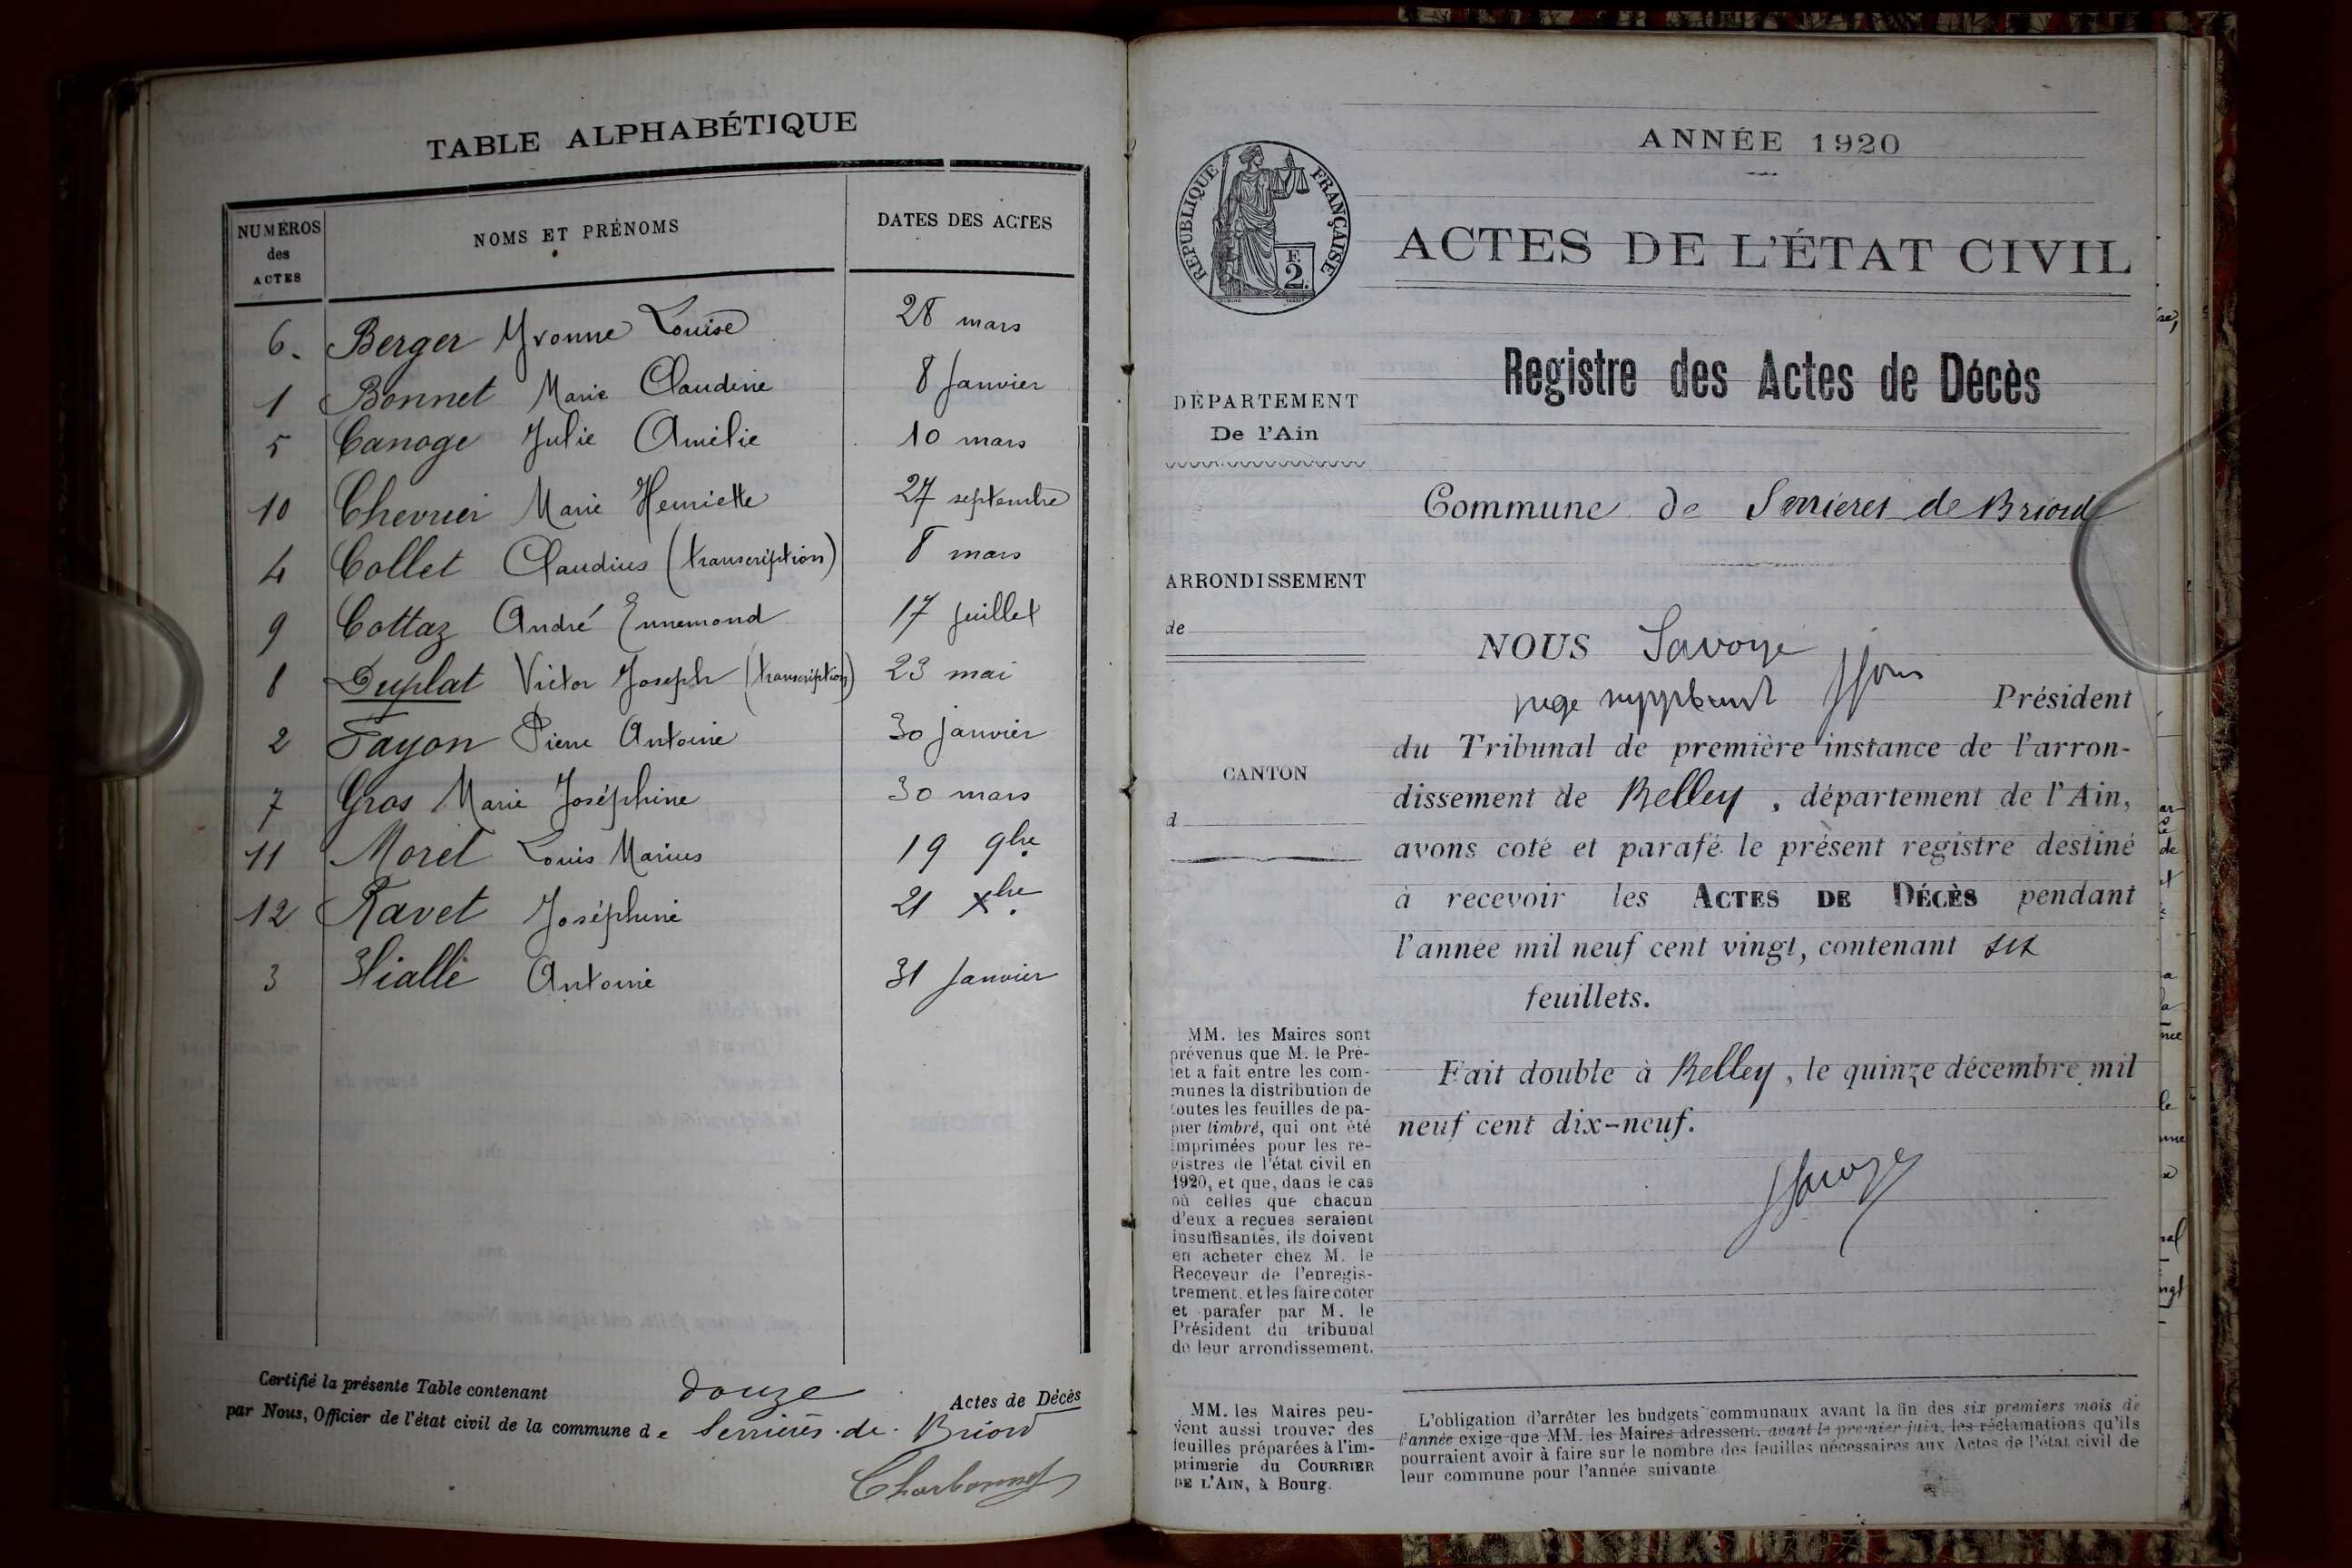 TABLE ALPHABÉTIQUE
NUMÉROS des ACTES
NOMS ET PRÉNOMS
DATES DES ACTES
6. Berger Yvonne Louise 28 mars
1 Bonnet Marie Claudine 8 Janvier
5 Canoge Julie Amélie 10 mars
10 Chevrier Marie Henriette 27 septembre
4 Collet Claudius (transcription) 8 mars
9 Cottaz André Ennemond 17 juillet
8 Duplat Victor Joseph (transcription) 23 mai
2 Fayon Pierre Antoine 30 janvier
7 Gros Marie Joséphine 30 mars
11 Morel Louis Marius 19 9bre
12 Ravet Joséphine 21 Xbre
3 Antoine 31 Janvier
Certifié la présente Table contenant douze Actes de Décès
par Nous, Officier de l'état civil de la commune de Serrières-de-Briord
Charbonnet
RÉPUBLIQUE FRANÇAISE
F. 2.
ANNÉE 1920
ACTES DE L'ÉTAT CIVIL
Registre des Actes de Décès
DÉPARTEMENT
De l'Ain
Commune de Serrieres de Briord
ARRONDISSEMENT
de
CANTON
d
NOUS Savoye
juge suppléant Président
du Tribunal de première instance de l'arron-
dissement de Belley, département de l'Ain,
avons coté et parafé le présent registre destiné
à recevoir les ACTES DE DÉCÈS pendant
l'année mil neuf cent vingt, contenant six
feuillets.
Fait double à Belley, le quinze décembre mil
neuf cent dix-neuf.
MM. les Maires sont
prévenus que M. le Pré-
fet a fait entre les com-
munes la distribution de
toutes les feuilles de pa-
pier timbré, qui ont été
imprimées pour les re-
gistres de l'état civil en
1920, et que, dans le cas
où celles que chacun
d'eux a reçues seraient
insuffisantes, ils doivent
en acheter chez M. le
Receveur de l'enregis-
trement, et les faire coter
et parafer par M. le
Président du tribunal
de leur arrondissement.
MM. les Maires peu-
vent aussi trouver des
feuilles préparées à l'im-
primerie du COURRIER
DE L'AIN, à Bourg.
L'obligation d'arrêter les budgets communaux avant la fin des six premiers mois de
l'année exige que MM. les Maires adressent, avant le premier juin, les réclamations qu'ils
pourraient avoir à faire sur le nombre des feuilles nécessaires aux Actes de l'état civil de
leur commune pour l'année suivante